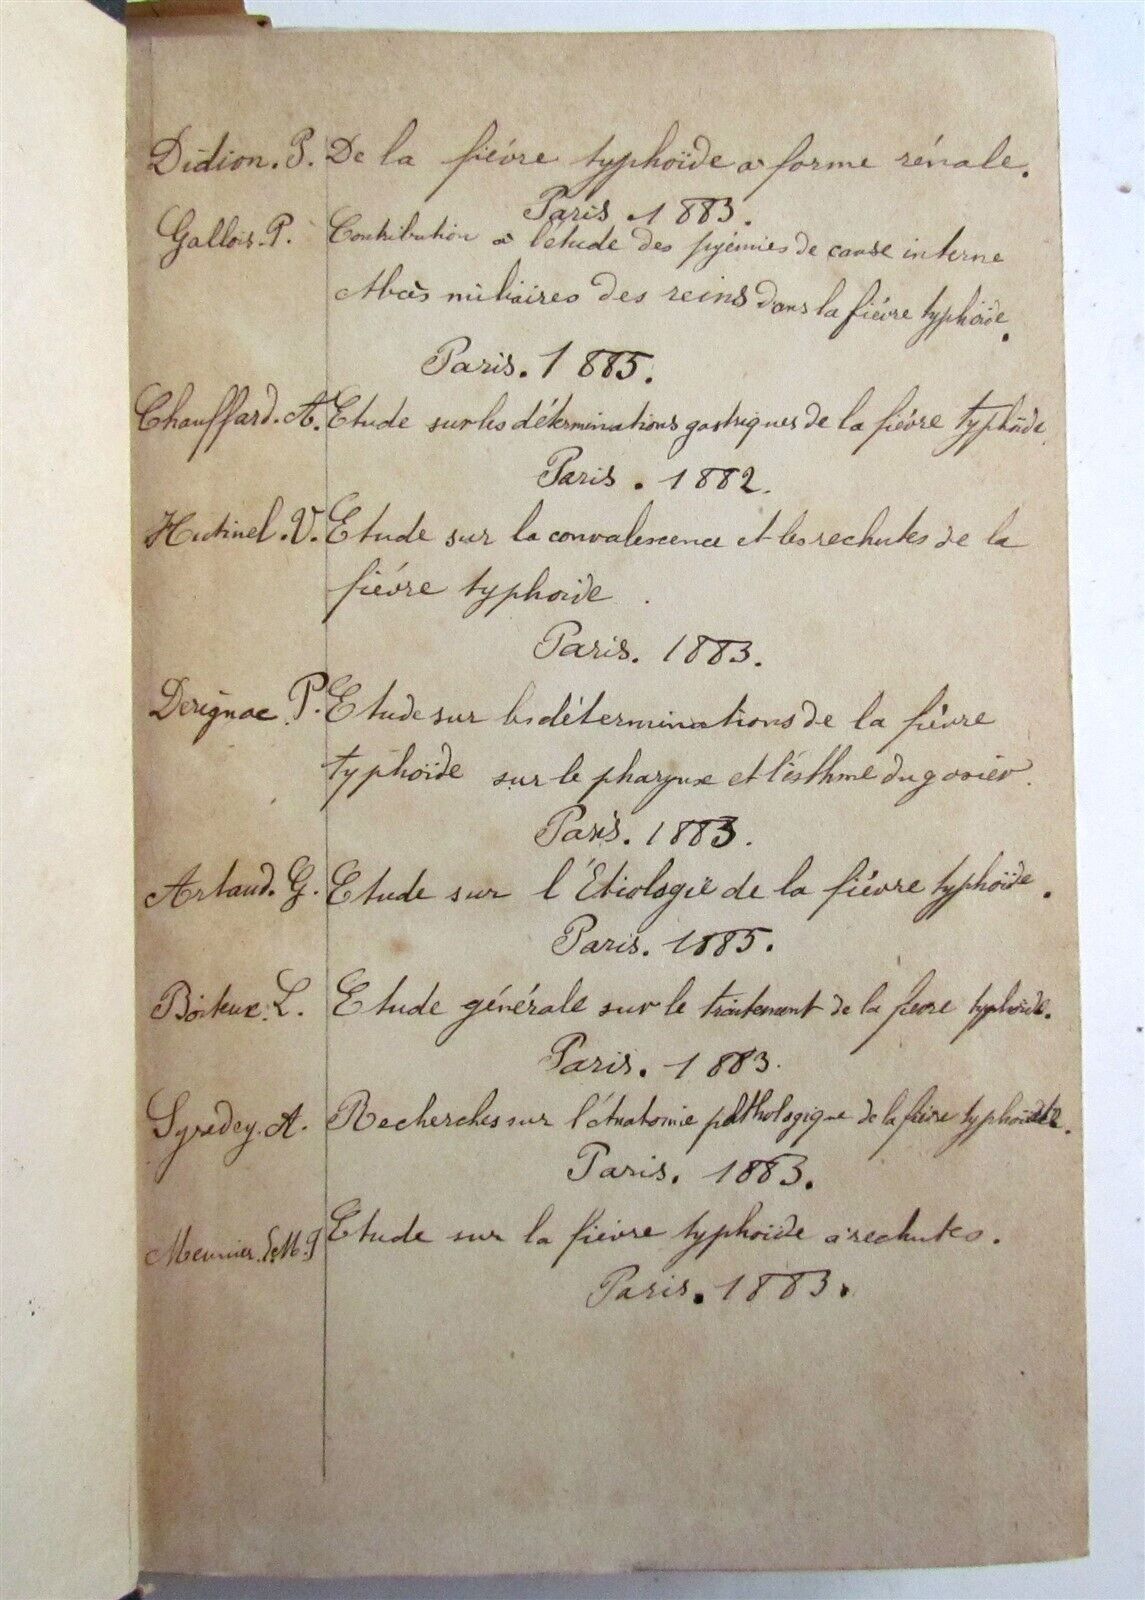 Didion. P. De la fiévre typhoïde à forme rénale.
Paris. 1883.
Gallois. P. Contribution à l'étude des pyémies de cause interne
Abcès miliaires des reins dans la fiévre typhoïde.
Paris. 1885.
Chauffard. A. Etude sur les déterminations gastriques de la fiévre typhoïde
Paris. 1882.
Hutinel. V. Etude sur la convalescence et les rechutes de la
fiévre typhoïde.
Paris. 1883.
Derignac. P. Etude sur les déterminations de la fiévre
typhoïde sur le pharynx et l'isthme du gosier.
Paris. 1883.
Artaud. G. Etude sur l'Etiologie de la fiévre typhoïde.
Paris. 1885.
Boiteux. L. Etude générale sur le traitement de la fievre typhoïde.
Paris. 1883.
Syredey. A. Recherches sur l'Anatomie pathologique de la fiévre typhoïde.
Paris. 1883.
Meunier. Etude sur la fiévre typhoïde à rechutes.
Paris. 1883.